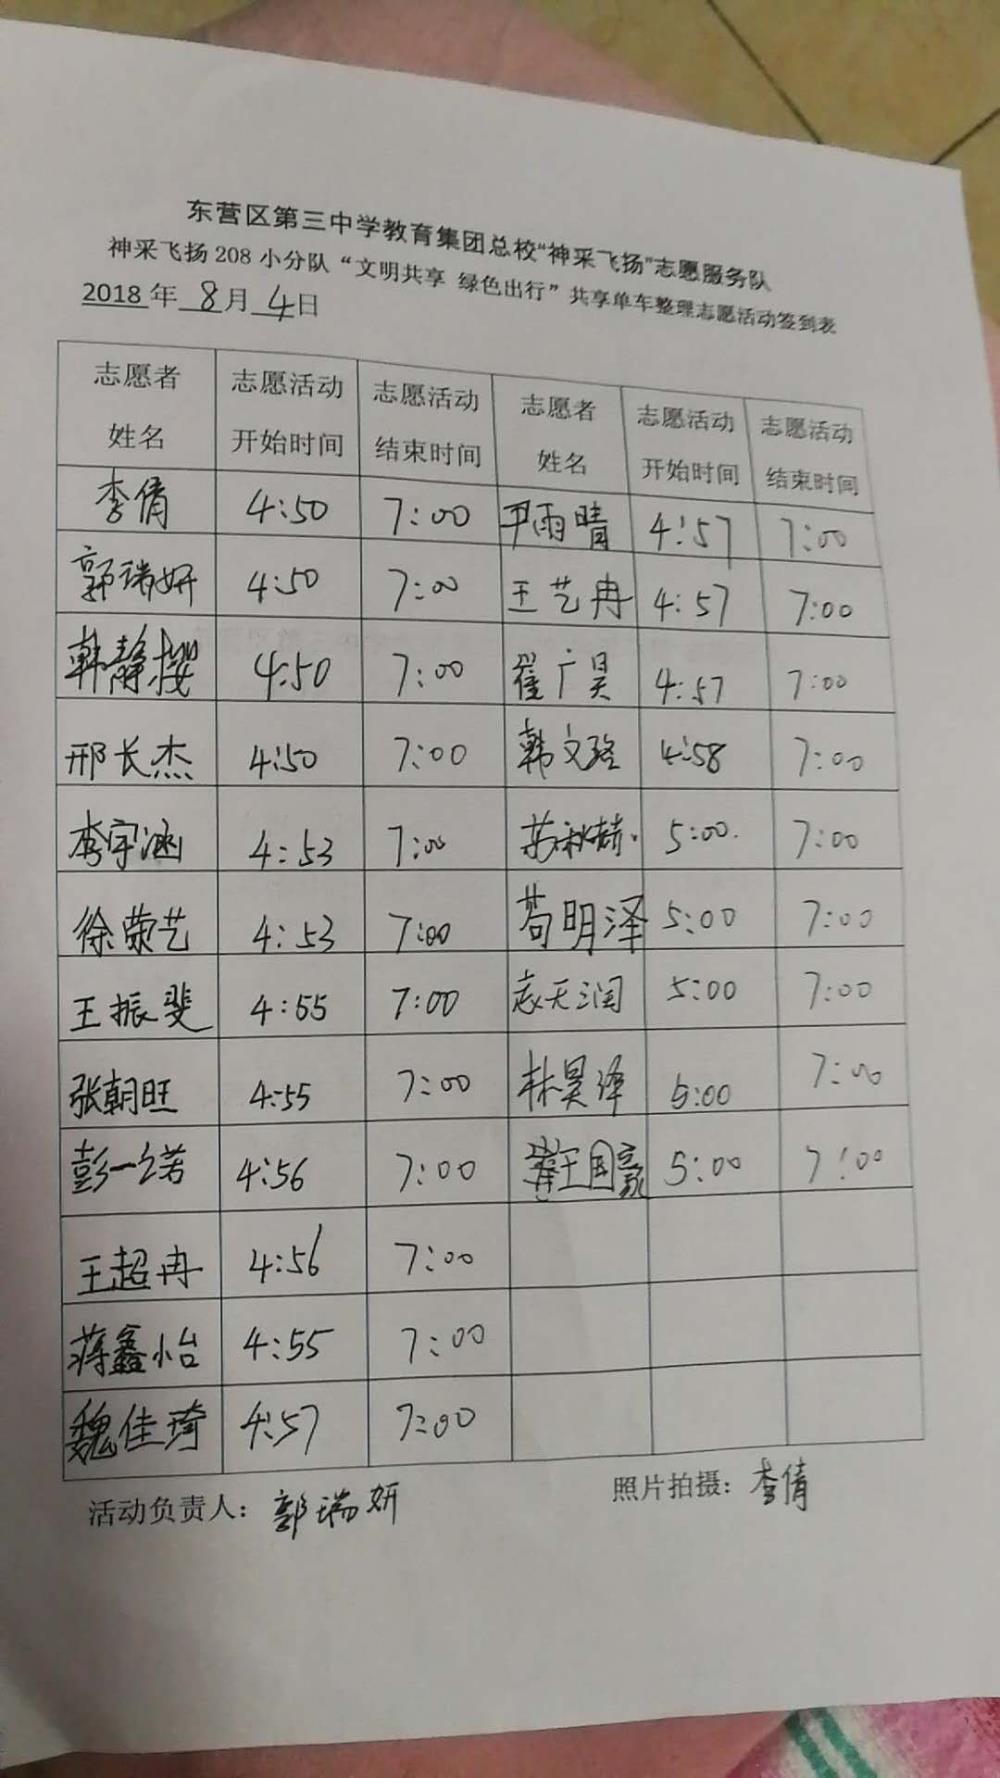 东营区第三中学教育集团总校“神采飞扬”志愿服务队
神采飞扬 208 小分队“文明共享 绿色出行”共享单车整理志愿活动签到表
2018 年 8 月 4 日
志愿者姓名 志愿活动开始时间 志愿活动结束时间 志愿者姓名 志愿活动开始时间 志愿活动结束时间
李倩 4:50 7:00 尹雨晴 4:57 7:00
郭瑞妍 4:50 7:00 王艺冉 4:57 7:00
韩静樱 4:50 7:00 崔广昊 4:57 7:00
邢长杰 4:50 7:00 韩文路 4:58 7:00
李宇涵 4:53 7:00 5:00. 7:00
徐荣艺 4:53 7:00 苟明泽 5:00 7:00
王振斐 4:55 7:00 天润 5:00 7:00
张朝旺 4:55 7:00 林昊泽 5:00 7:00
彭一诺 4:56 7:00 王国豪 5:00 7:00
王超冉 4:56 7:00
蒋鑫怡 4:55 7:00
魏佳琦 4:57 7:00
活动负责人：郭瑞妍 照片拍摄：李倩